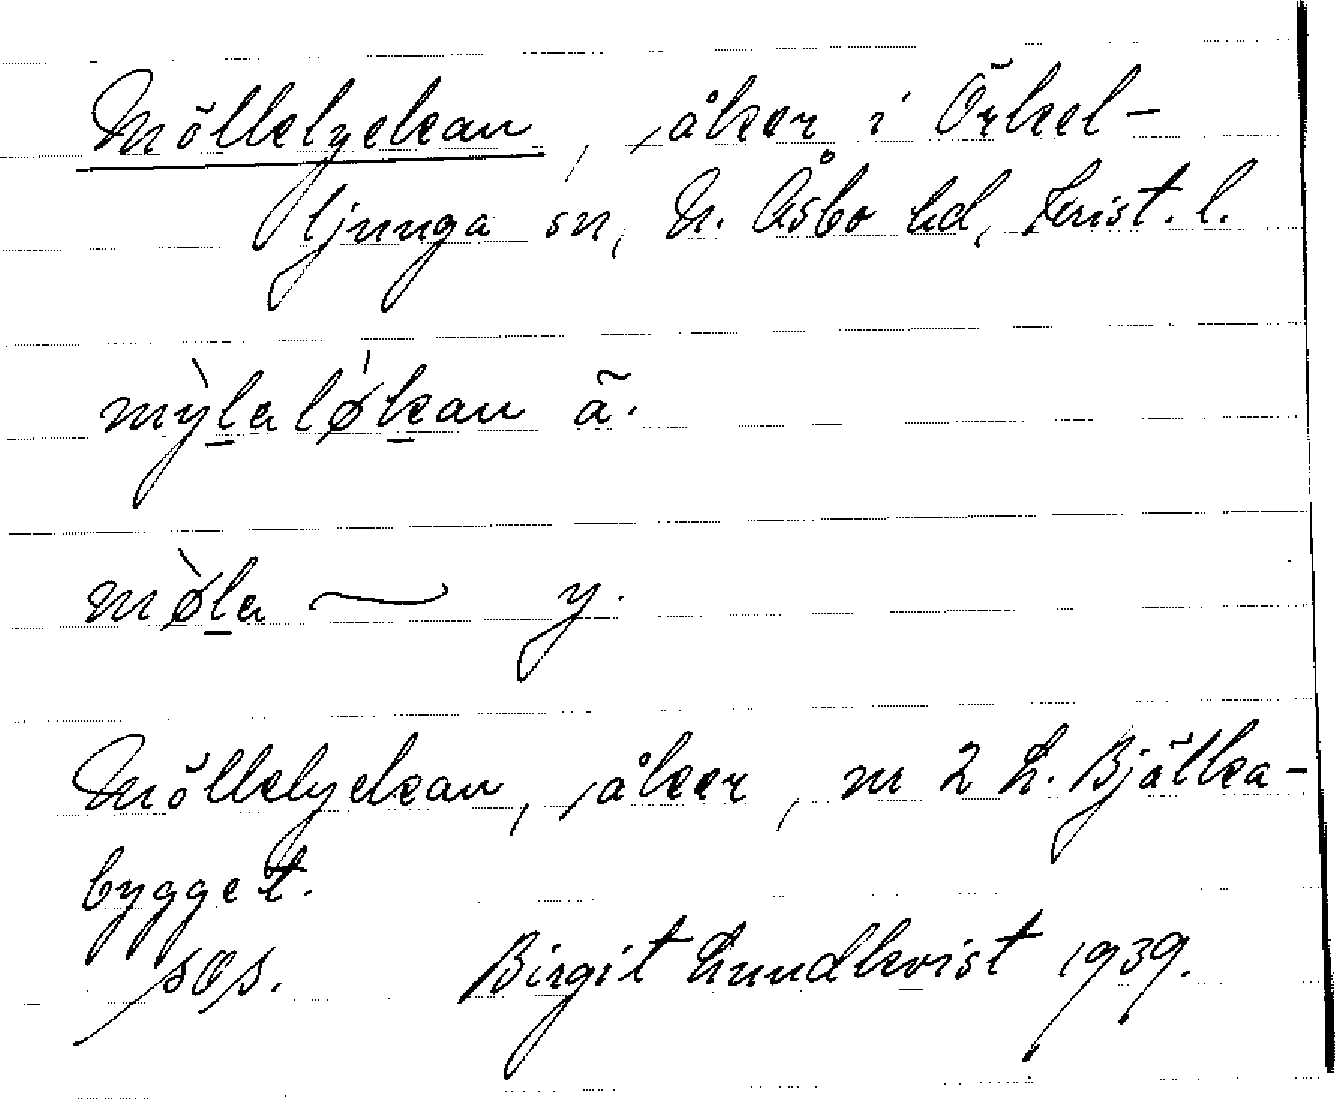 Möllelyckan, åker i Örkel-
ljunga sn, N. Åsbo hd, Krist. l.
mỳlalǿkan ä.
mø̀la ~ y.
Möllelyckan, åker, nr 2 L. Bjälka-
bygget.
sos. Birgit Lundkvist 1939.